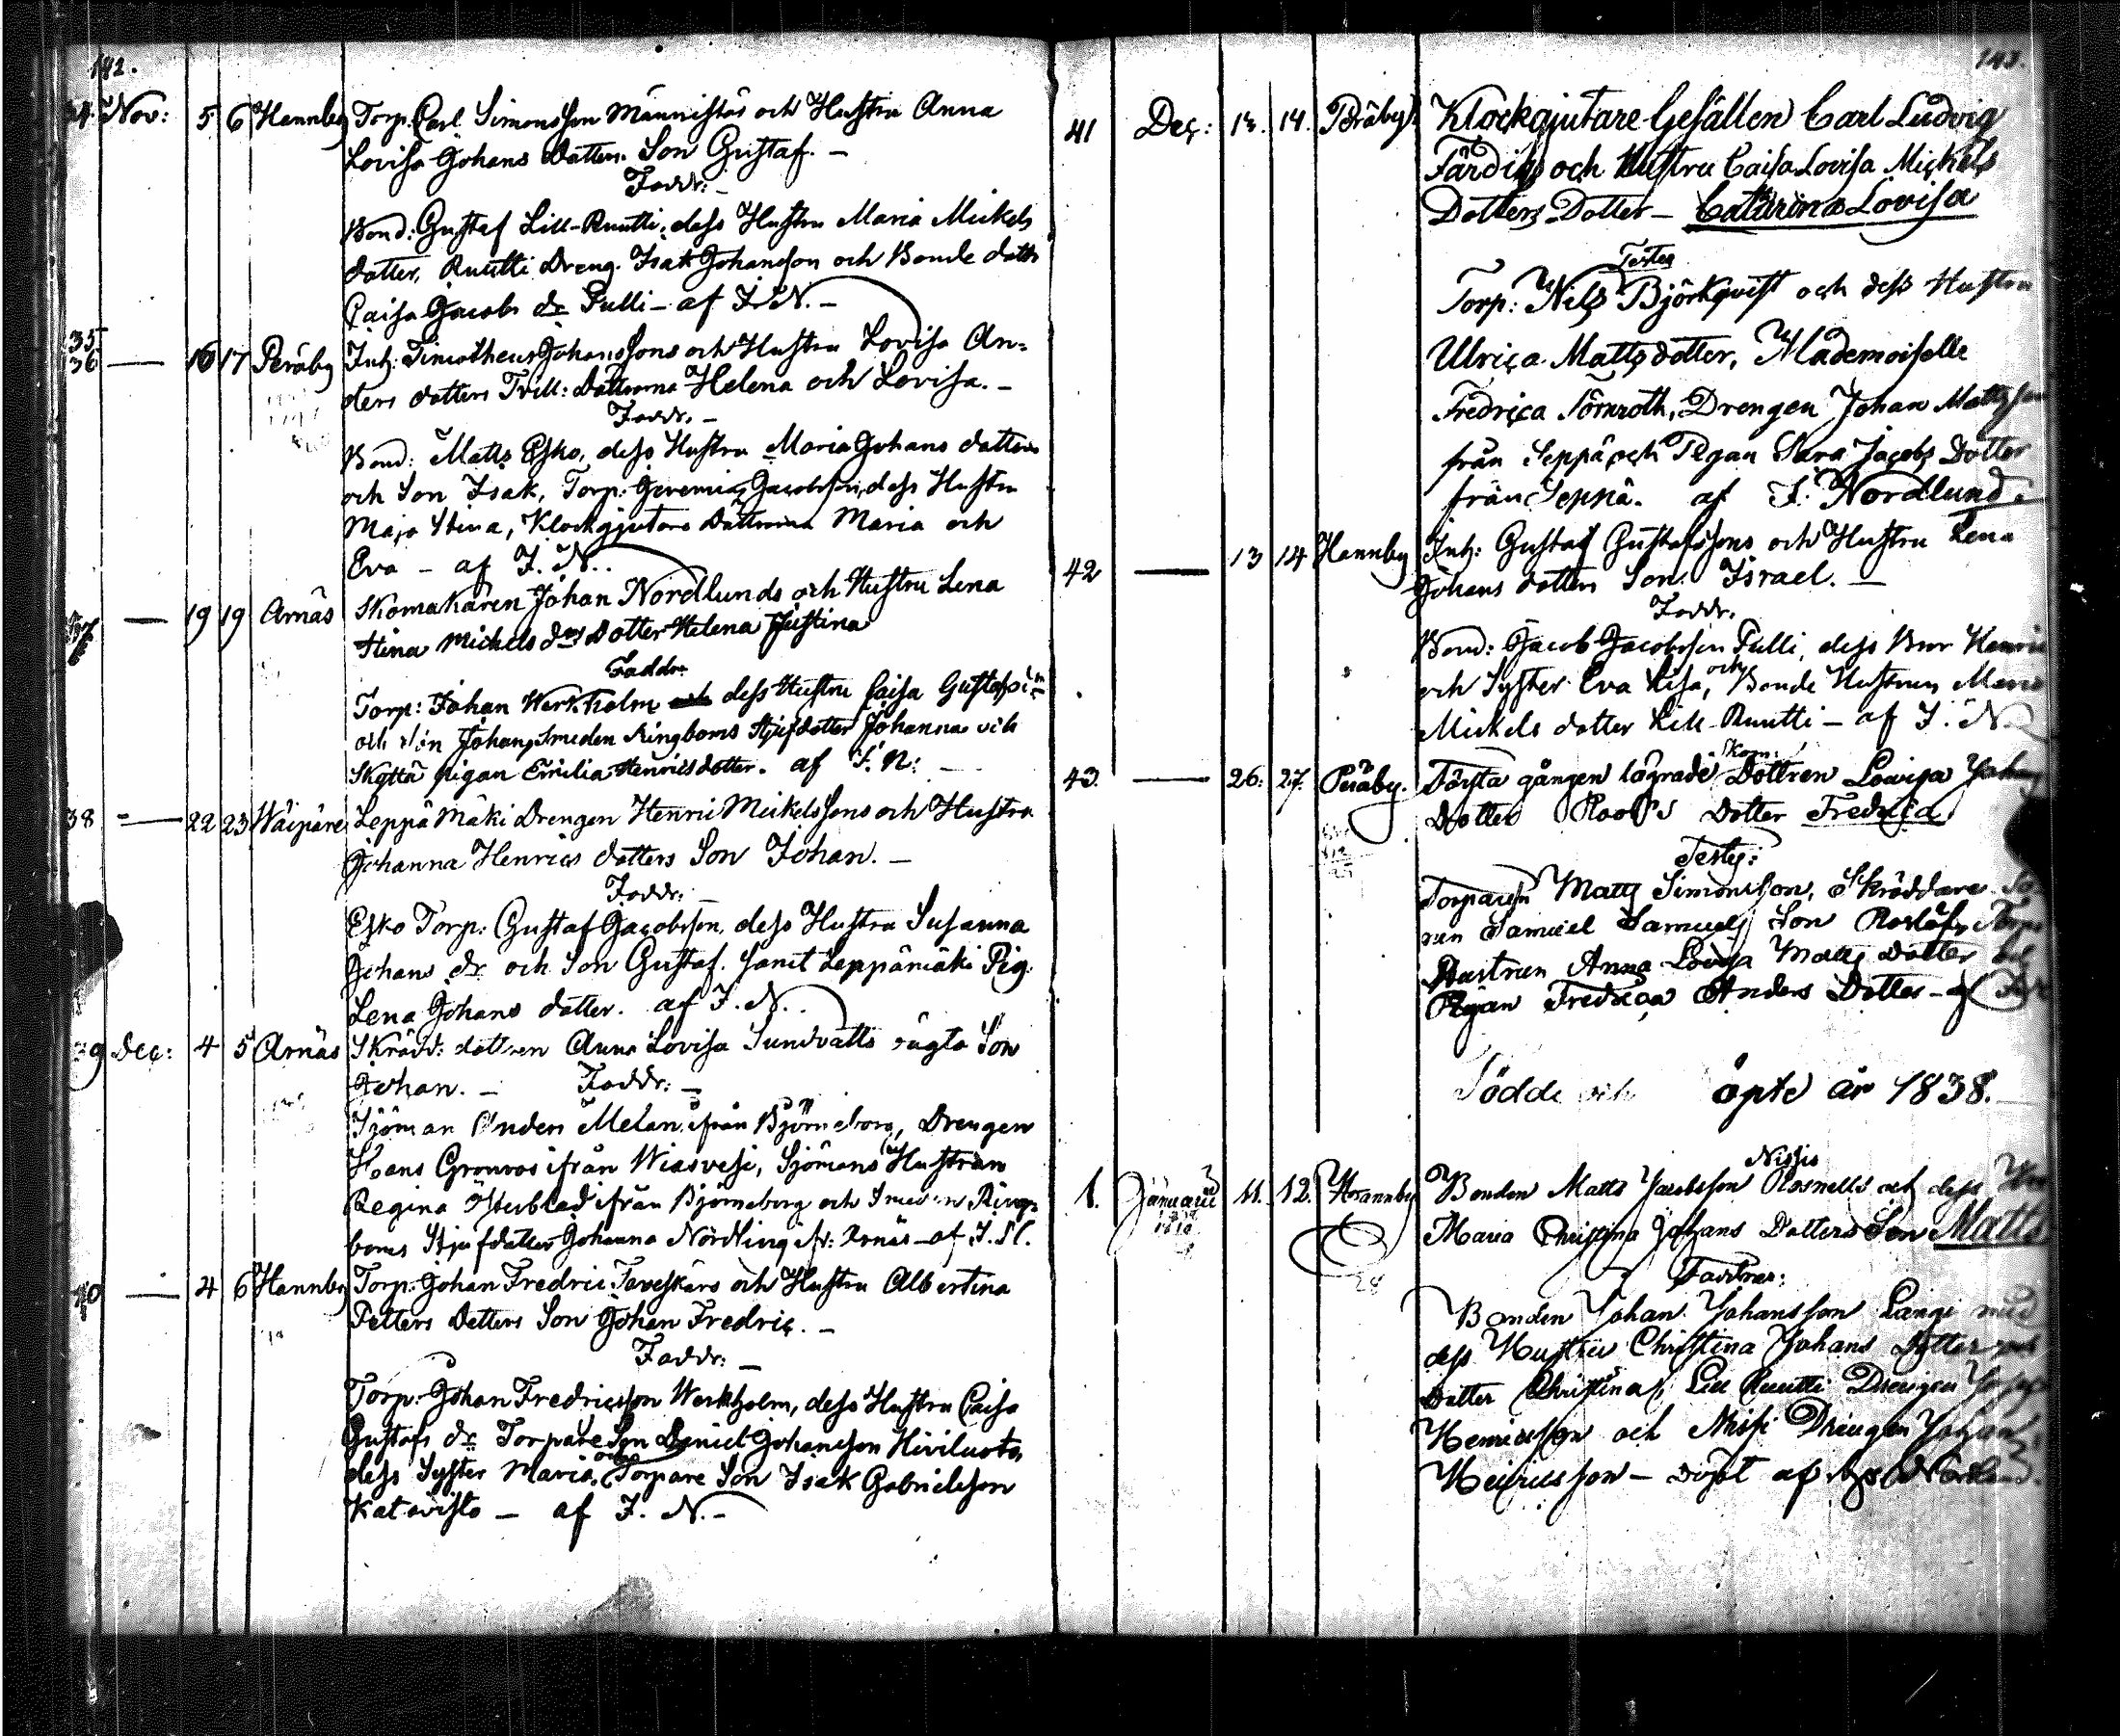 142.
34. Nov: 5 6 Hannby Torp. Carl Simonsson Männistös och Hustru Anna
Lovisa Johans Dotters Son Gustaf. –
Faddr: –
Bond: Gustaf Lill-Ruutti, dess Hustru Maria Mickels
dotter, Ruutti Dreng. Isak Johansson och Bonde dottr
Caisa Jacobs dr Pulli – af J. N. –
35
36 — 16 17 Peräby Inh: Timotheus Johanssons och Hustru Lovisa An-
ders dotters Tvill: Döttrarna Helena och Lovisa. –
Faddr. –
Bond: Matts Esko, dess Hustru Maria Johans dotter
och Son Isak, Torp: Jeremias Jacobsson, dess Hustru
Maja Stina, Klockgjutare Döttrarna Maria och
Eva – af J. N.
37 — 19 19 Arnäs Skomakaren Johan Nordlunds och Hustru Lena
Stina Mickels drs Dotter Helena Justina
Faddr.
Torp: Johan Werkholm dess Hustru Caisa Gustafs
och son Johan, Smeden Ringboms Stjufdotter Johanna och
Skyttä pigan Emilia Henricsdotter. af J. N:
38 — 22 23 Wäipäre Leppämäki Drengen Henric Mickelssons och Hustru
Johanna Henrics dotters Son Johan. –
Faddr: –
Esko Torp: Gustaf Jacobsson, dess Hustru Susanna
Johans dr och Son Gustaf. samt Leppämäki Pig.
Lena Johans dotter. af J. N.
39 Dec: 4 5 Arnäs Skrädd: dottren Anna Lovisa Sundvalls oägta Son
Johan. – Faddr: –
Sjöman Anders Melan ifrån Björneborg, Drengen
Hans Grönroos ifrån Wiasvesi, Sjömans Hustrun
Regina Österblad ifrån Björneborg och Smeden Ring-
boms Stjufdotter Johanna Nördling ifr: Arnäs – af J. N.
40 — 4 6 Hannby Torp: Johan Fredric Taveskärs och Hustru Albertina
Petters Dotters Son Johan Fredric. –
Faddr: –
Torp: Johan Fredricsson Werkholm, dess Hustru Caisa
Gustafs dr Torpare Son Daniel Johansson Hiviluoto,
dess Syster Maria, och Torpare Son Isak Gabrielsson
Katavisto – af J. N. –
143.
41 Dec: 13. 14. Peräby Klockgjutare Gesällen Carl Ludvig
Färdigs och Hustru Caisa Lovisa Mickels
Dotters Dotter – Catarina Lovisa
Testes
Torp: Nils Björkqvist och dess Hustru
Ulrica Matts dotter, Mademoiselle
Fredrica Törnroth, Drengen Johan Mattsson
från Seppä och Pigan Sara Jacobs Dotter
från Seppä. af J. Nordlund.
42 — 13 14 Hannby Inh: Gustaf Gustafssons och Hustru Lena
Johans dotters Son Israel. –
Faddr.
Bond: Jacob Jacobsson Pulli, dess Bror Henric
och Syster Eva Lisa, och Bonde Hustrun Maria
Mickels dotter Lill-Ruutti – af J. N.
43. — 26. 27. Peräby. Första gången lägrade Skom: Dottren Lovisa Johans
Dotter Roos's Dotter Fredrica
Testes:
Torparen Matts Simonsson, Skräddare
Samuel Samuels Son
Hustrun Anna Lovisa Matts Dotter
Pigan Fredrica Anders Dotter – af
Födde och öpte år 1838.
1. Januarii 11. 12. Hannby Bonden Matts Jacobsson Nissis och dess
Maria Christina Johans Dotters Son Matts
Faddrar:
Bonden Johan Johansson Längi med
dess Hustru Christina Johans Dotter och
Dotter Christina, Lill Ruutti Drengen
Henricsson och Nissi Drengen Johan
Henricsson – döpt af